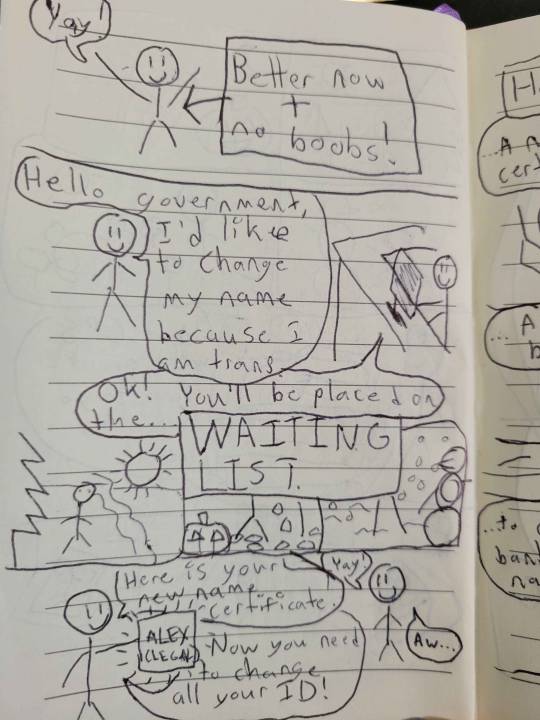 Yay!
Better now
+
no boobs!
Hello government,
I'd like
to change
my name
because I
am trans.
Ok! You'll be placed on
the...
WAITING
LIST.
Here is your
new name
certificate.
Yay!
ALEX
(LEGAL)
Now you need
to change
all your ID!
Aw...
H
...A
cert
...A
b
...to
ban
na